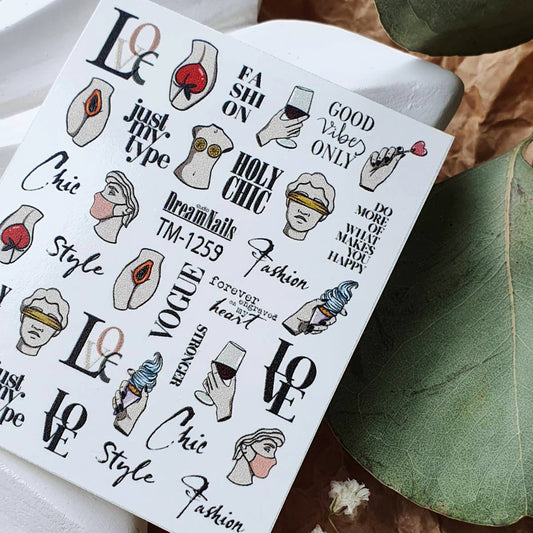 LOVE
FA
SHI
ON
GOOD
Vibes
ONLY
just
my
type
HOLY
CHIC
DO
MORE
OF
WHAT
MAKES
YOU
HAPPY
Chic
DreamNails
TM-1259
Style
Fashion
VOGUE
forever
engraved
on my
heart
LOVE
STRONGER
LOVE
just
my
type
LOVE
Chic
Style
Fashion